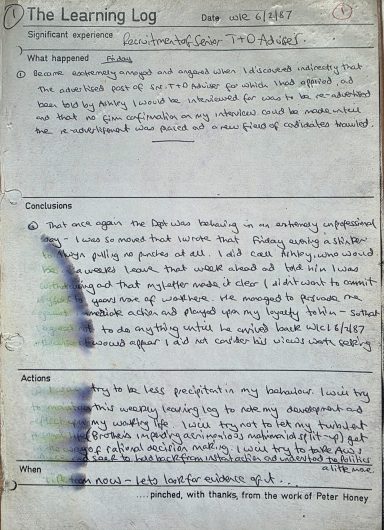 1 The Learning Log Date w/c 6/2/87 1
Significant experience Recruitment of Senior T+D Adviser.
What happened Friday
1 Became extremely annoyed and angered when I discovered indirectly that
the advertised post of Snr. T+D Adviser for which I had applied, ad
been told by Ashley I would be interviewed for was to be re-advertised
and that no firm confirmation on my interview could be made until
the re-advertisement was placed ad a new field of cadidates trawled.
Conclusions
That once again the Dept was behaving in an extremely unprofessional
way - I was so moved that I wrote that Friday evening a stinker
to pulling no punches at all. I did call Ashley, who would
be weeks leave that week ahead ad told him I was
ad that my letter made it clear I didn't want to commit
years more of work here. He managed to persuade me
immediate action and played upon my loyalty to him - so that
to do anything until he arrived back W/C 16/2/87
it would appear I did not consider his views worth seeking
Actions
try to be less precipitant in my behaviour. I will try
this weekly learning log to note my development ad
my working life. I will try not to let my turbulent
(Brothers impending acrimonious matrimonial split-up) get
way of rational decision making. I will try to take
ad seek to hold back from instant action ad understad the Politics
a little more.
When
from now - lets look for evidence of it. ..
....pinched, with thanks, from the work of Peter Honey